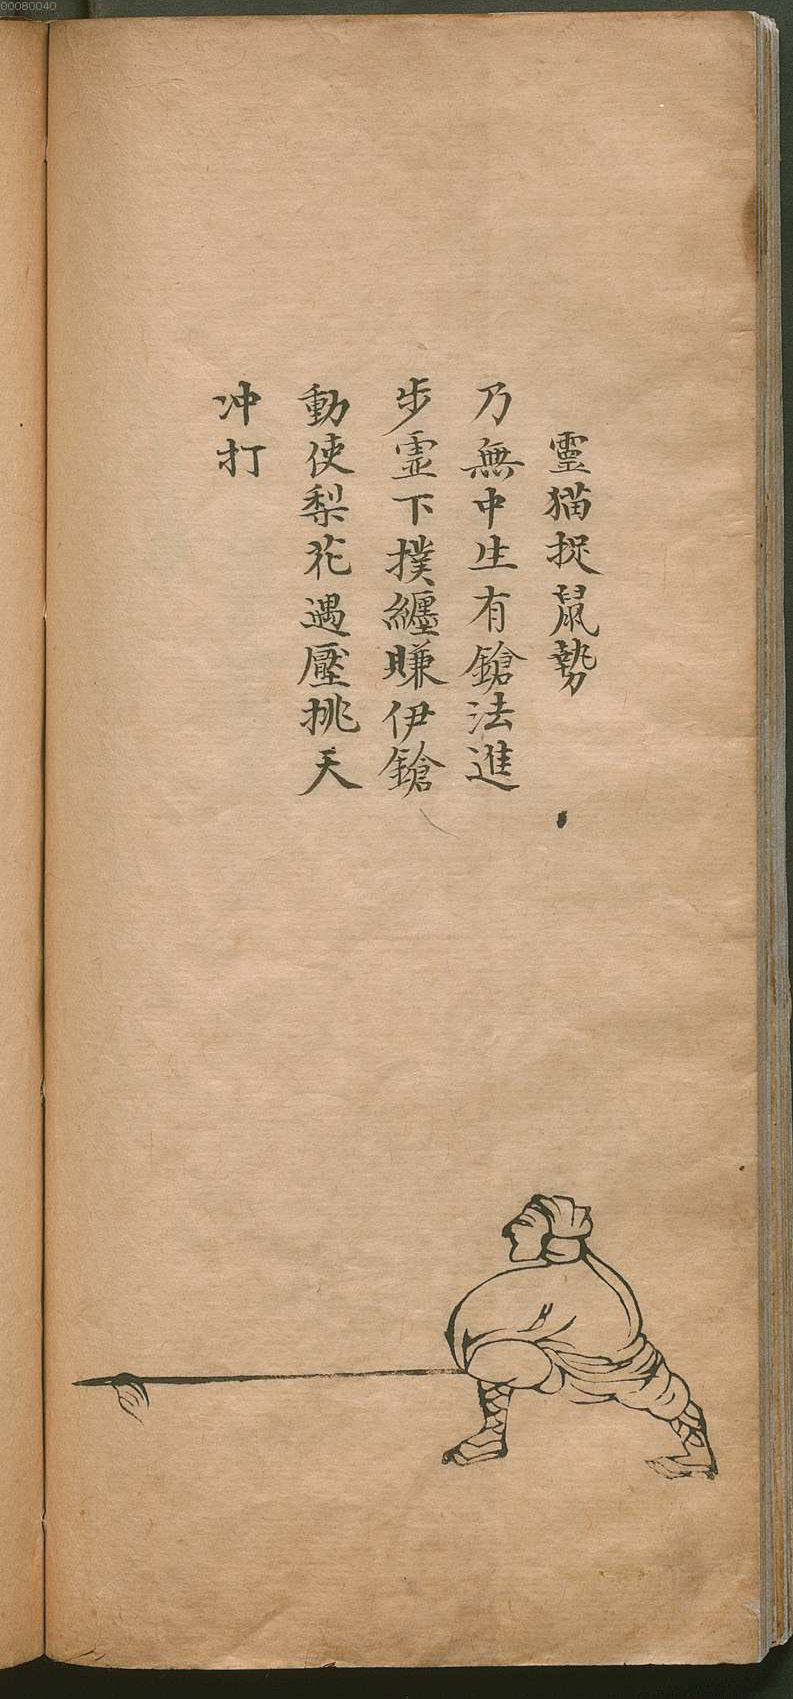 00080040
靈猫捉鼠勢
乃無中生有鎗法進
步霊下撲纏賺伊鎗
動使梨花遇壓挑天
冲打